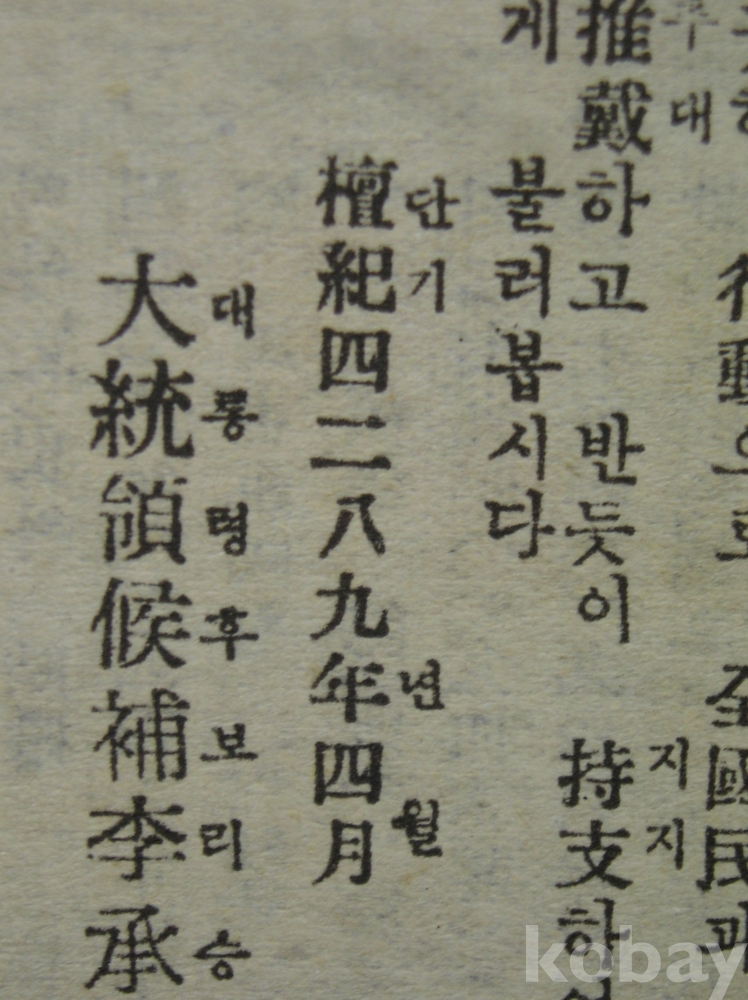 行動으로 全國民과
推戴하고 반듯이 持支하여
대 지지
게 불러봅시다
檀紀四二八九年四月
단기 년 월
大統領候補李承
대통령후보리승
kobay